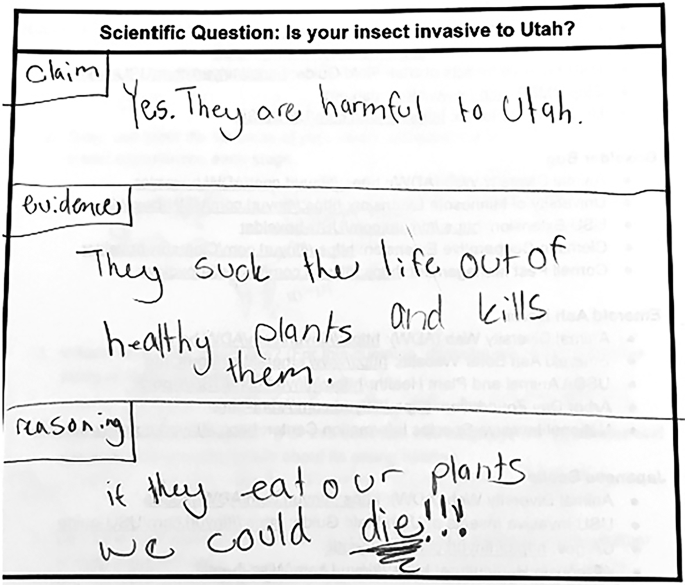 Scientific Question: Is your insect invasive to Utah?
Claim
Yes. They are harmful to Utah.
evidence
They suck the life out of
healthy plants and kills
them.
reasoning
if they eat our plants
we could die!!!